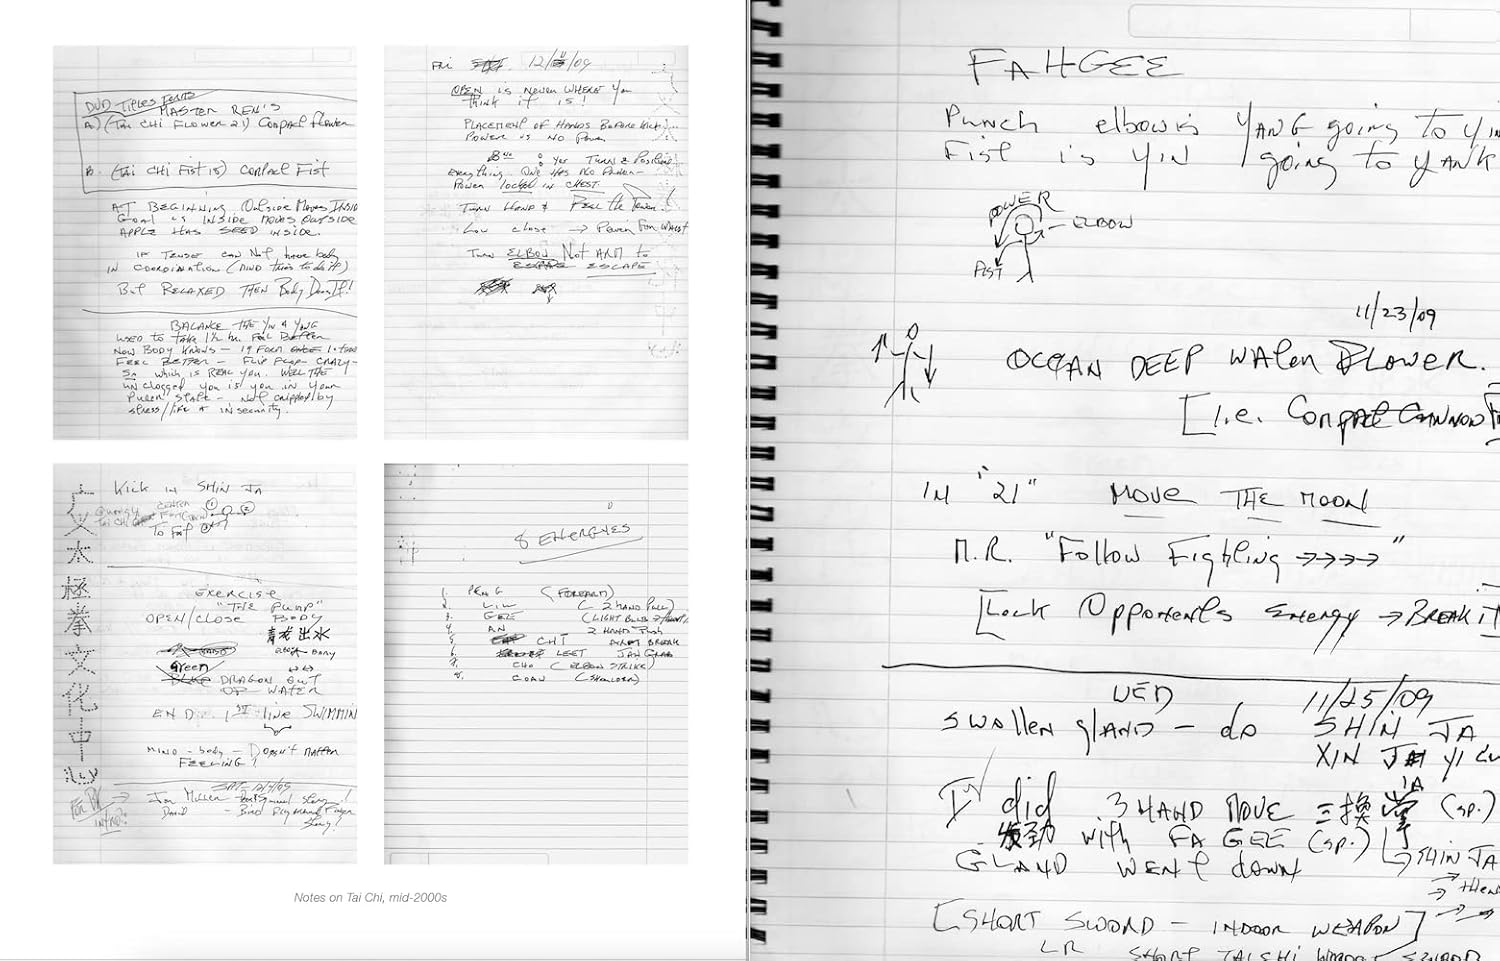 DVD Titles Fonts
MASTER REN'S
A.) (Tai CHI FLOWER 21) Compact Flower
B. (Tai CHI FIST 15) Compact Fist
AT BEGINNING Outside Moves INSIDE
Goal is INSIDE MOVES OUTSIDE
APPLE HAS SEED INSIDE.
IF TENSE CAN Not have body
IN COORDINATION (MIND tries to do it)
But RELAXED THEN Body Does IT!
BALANCE THE YIN & YANG
used to take 1½ hr. Feel Better
NOW BODY KNOWS — 19 Form
FEEL BETTER — FLIP FLOP CRAZY—
So which is REAL you. WELL THE
UNclogged you is you in your
Purer STATE — Not crippled by
stress/life & insecurity.
Fri 12/ /09
OPEN is Never WHERE You
think it is!
PLACEMENT OF HANDS BEFORE Kick
POWER vs NO Power
Everything One Has No
Power locked in CHEST.
TURN HAND & FEEL the Power
Low close → Power From WAIST
Turn ELBOW Not ARM to
ESCAPE
Kick in SHIN JA
To Fist
太
極
拳
文
化
中
心
Exercise
"THE PUMP"
OPEN/CLOSE BODY
青龙出水
Green
DRAGON OUT
OF WATER
END. 1ST line SWIMMIN
MIND - body - Doesn't MATTER
FEELING!
8 ENERGIES
1. PENG (FOREARM)
2. LIU (2 hand Pull)
3. GEE (LIGHT BULB
4. AN 2 HAND Push
5. CHI BREAK
6. LEET
7. CHO (ELBOW STRIKE)
8. COAU (SHOULDER)
Notes on Tai Chi, mid-2000s
FAHGEE
Punch elbow is YANG going to YIN
Fist is YIN going to YANK
POWER
ELBOW
FIST
11/23/09
OCEAN DEEP WATER FLOWER.
[I.e. Compact CANNON
IN "21" MOVE THE MOON
M.R. "Follow Fighting →→→→"
[Lock Opponents Energy → BREAK IT
WED 11/25/09
swollen gland — do SHIN JA
XIN JA YI
I did 3 HAND MOVE 三換掌 (sp.)
发劲 with FA GEE (sp.) SHIN JA
GLAND WENT down → then
[SHORT SWORD — INDOOR WEAPON]
SHORT TAI CHI SWORD